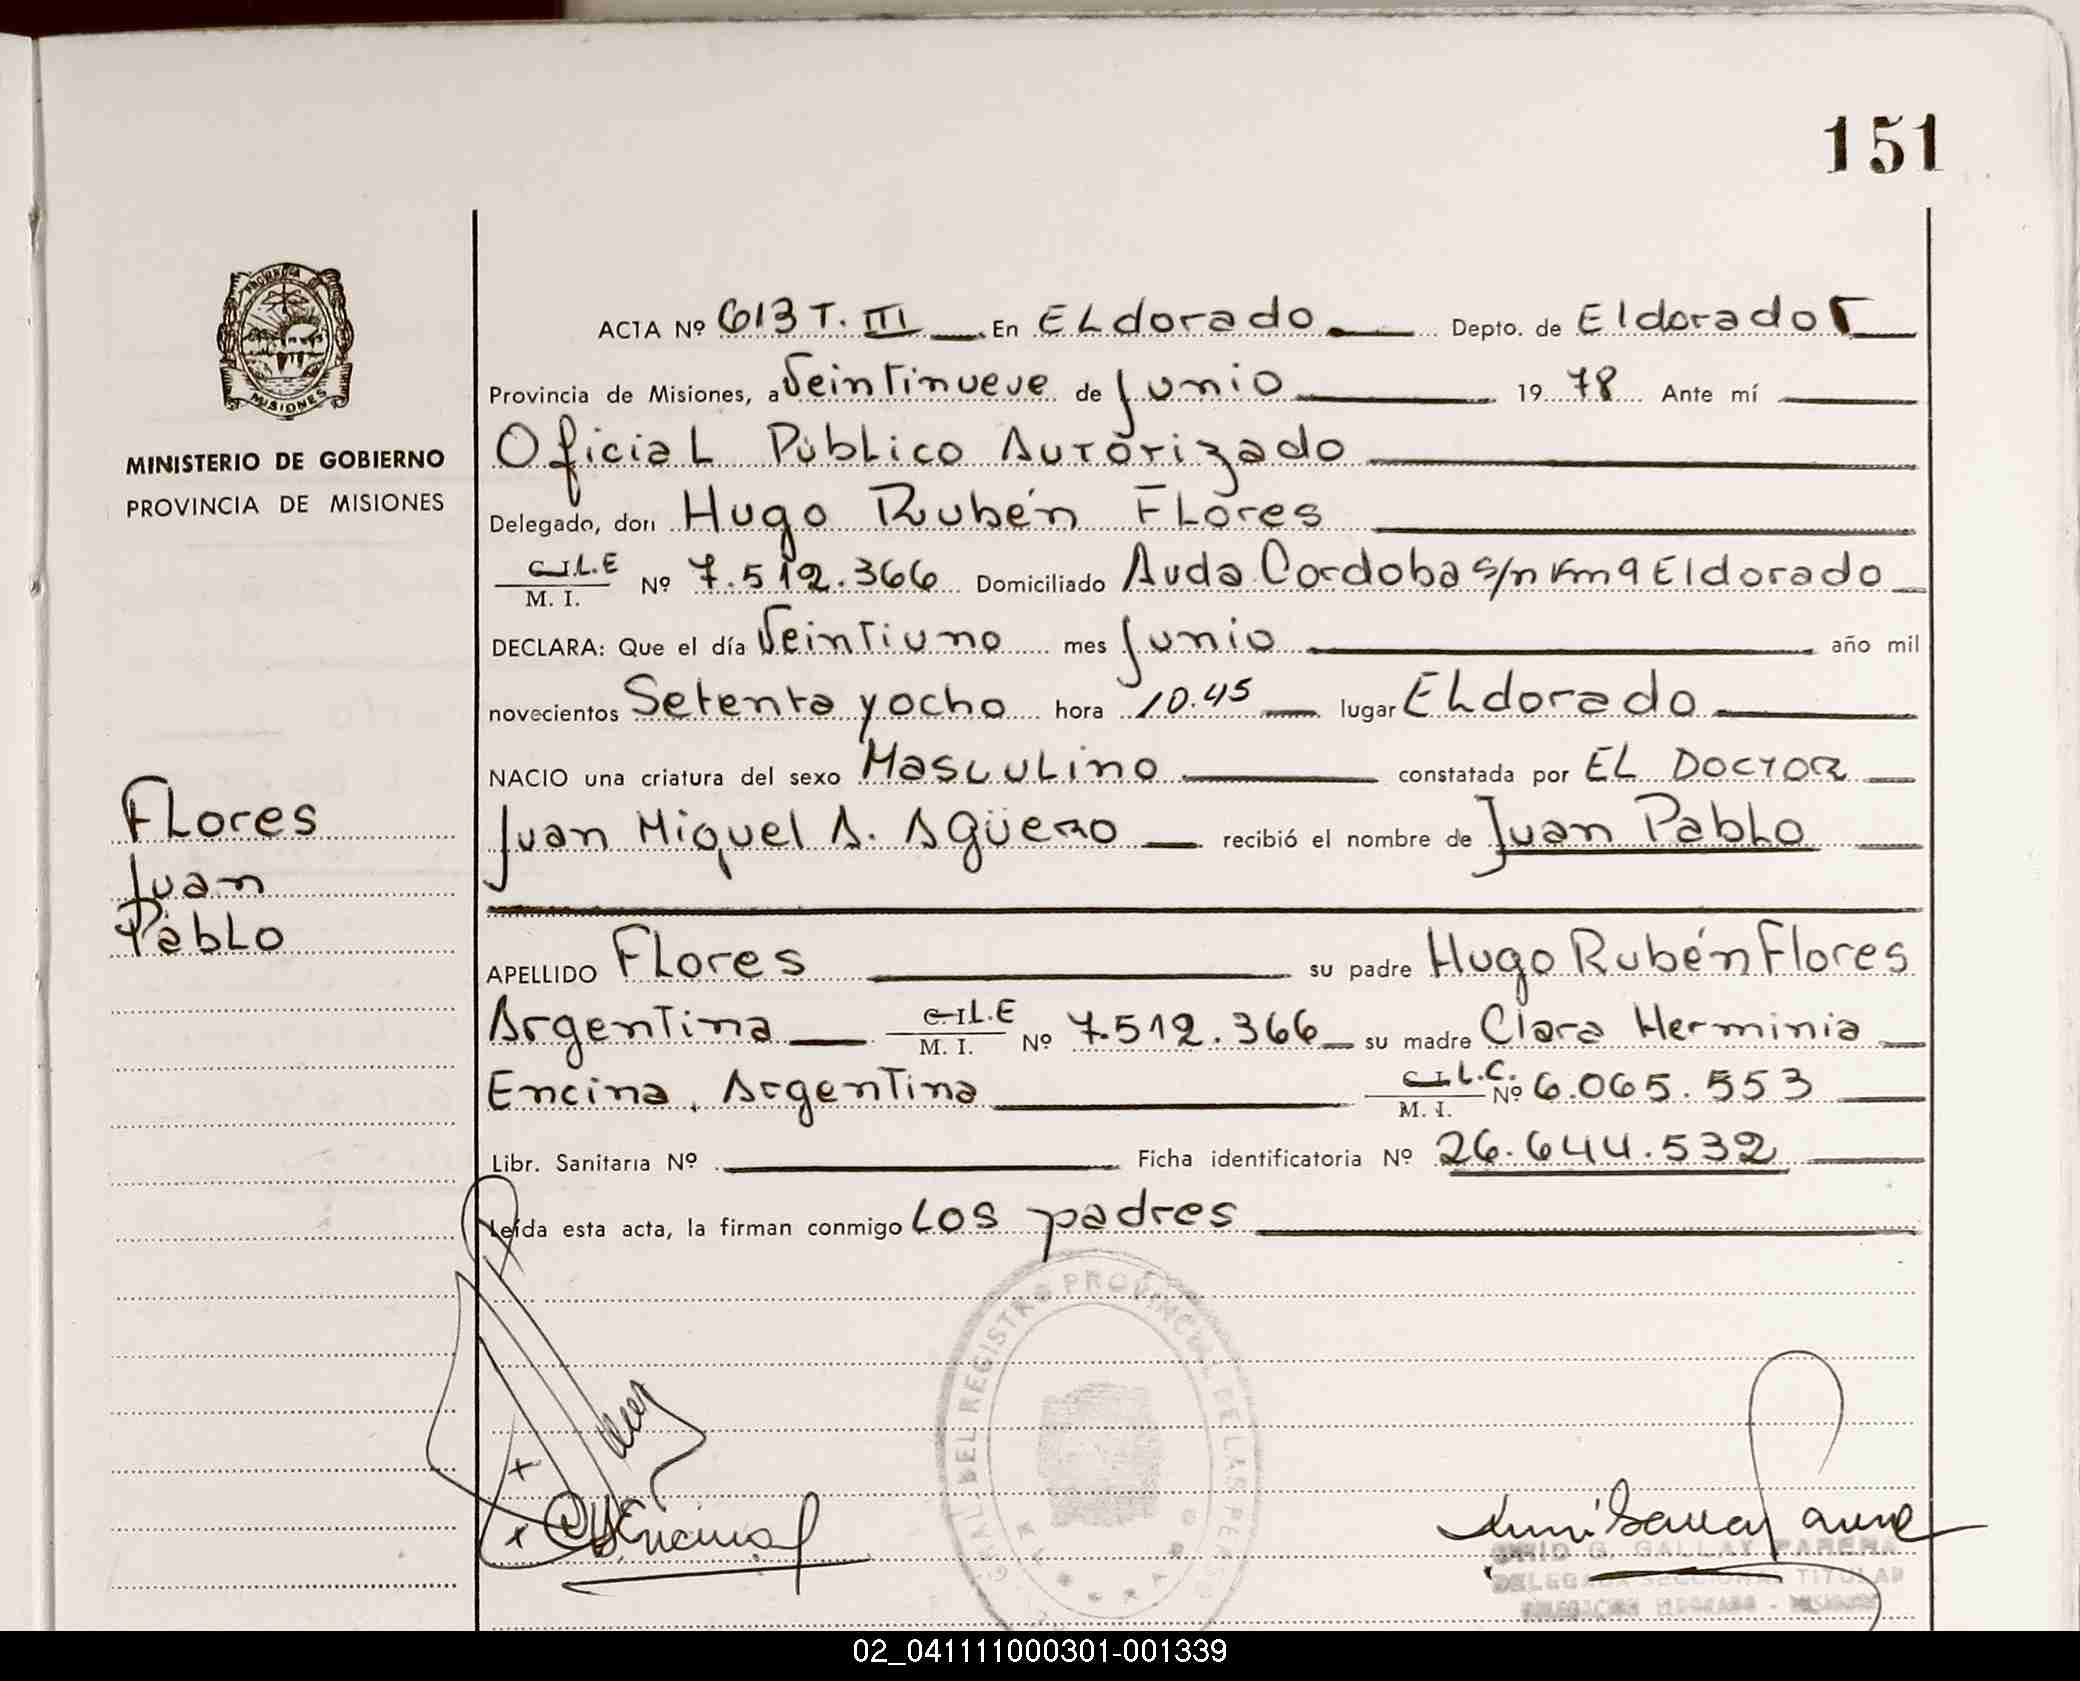 151
MISIONES
MINISTERIO DE GOBIERNO
PROVINCIA DE MISIONES
Flores
Juan
Pablo
ACTA Nº 613 T. III En ELdorado Depto. de Eldorado
Provincia de Misiones, a Veintinueve de Junio 19 78 Ante mí
Oficial Público Autorizado
Delegado, don Hugo Rubén Flores
C.I.L.E
M. I. Nº 7.512.366 Domiciliado Avda Cordoba s/n Km 9 Eldorado
DECLARA: Que el día Veintiuno mes Junio año mil
novecientos Setenta y ocho hora 10.45 lugar ELdorado
NACIO una criatura del sexo Masculino constatada por EL Doctor
Juan Miguel A. Agüero recibió el nombre de Juan Pablo
APELLIDO Flores su padre Hugo Rubén Flores
Argentina C.I.L.E M. I. Nº 7.512.366 su madre Clara Herminia
Encina, Argentina C.I.L.C. M. I. Nº 6.065.553
Libr. Sanitaria Nº Ficha identificatoria Nº 26.644.532
Leída esta acta, la firman conmigo Los padres
GRAL. DEL REGISTRO PROVINCIAL DE LAS PERSO
C.H. Encina
G. GALLAY PARERA
DELEGADA SECCIONAL TITULAR
DELEGACION ELDORADO - MISIONES
02_041111000301-001339